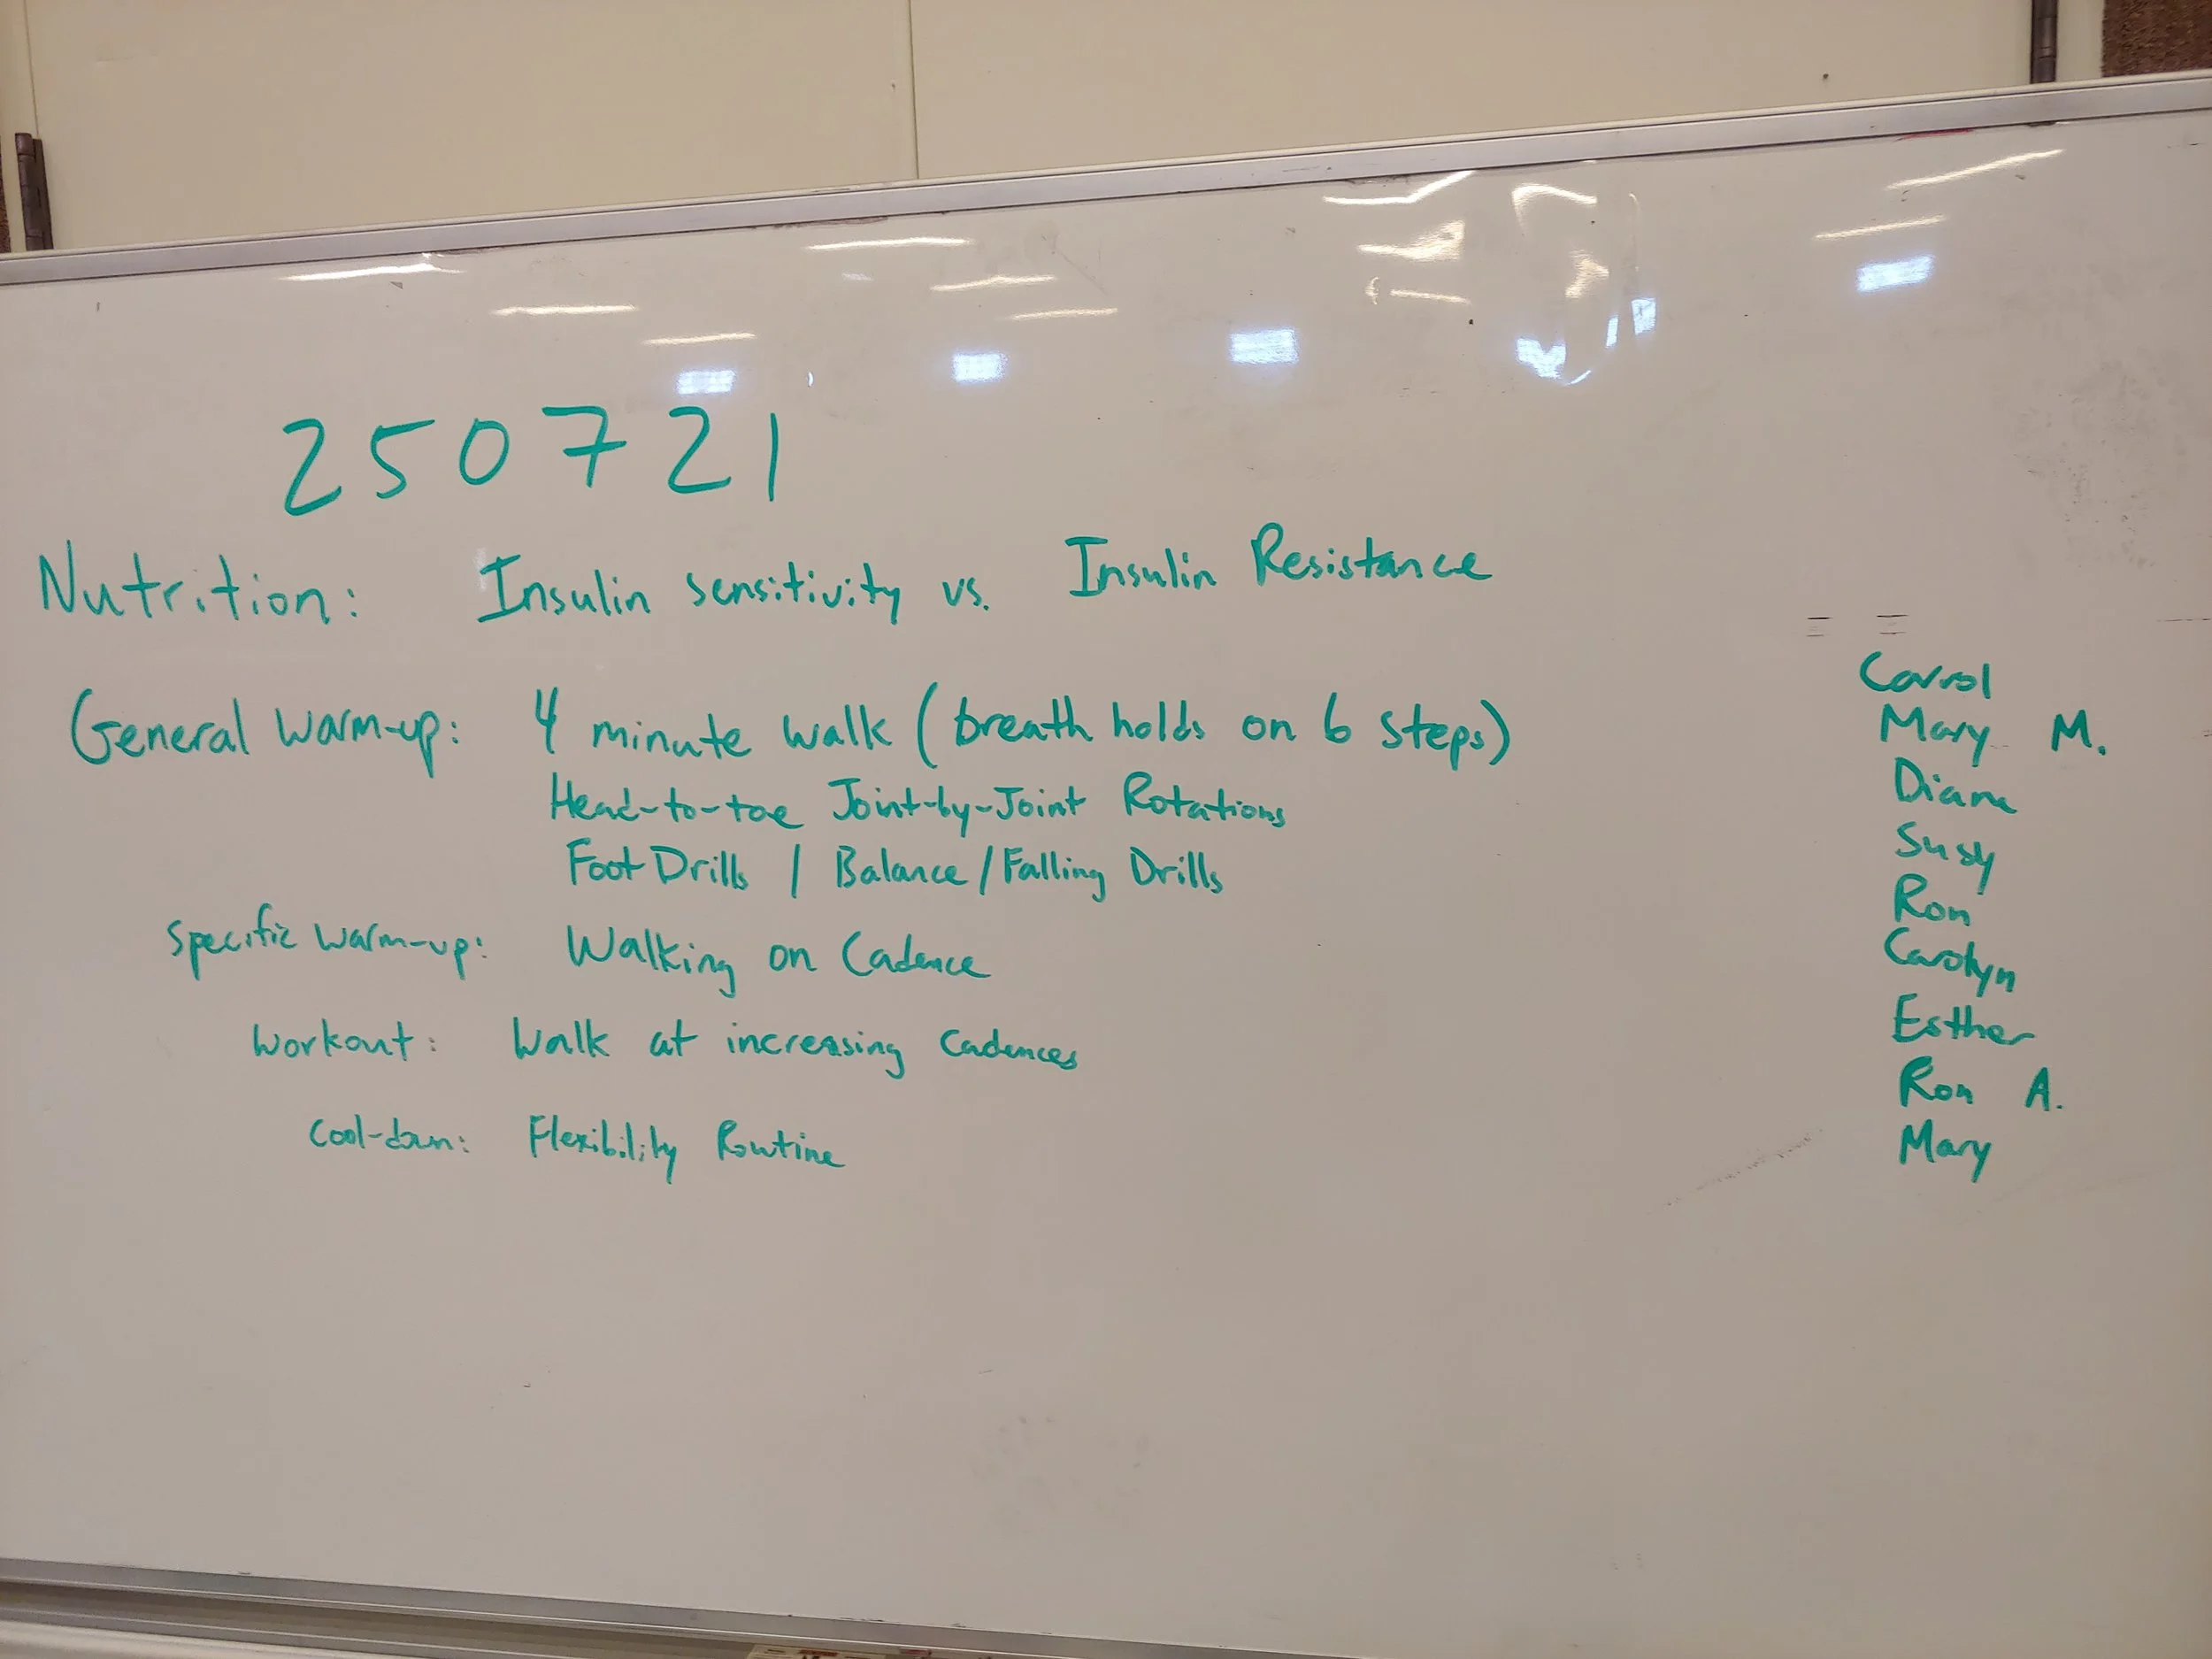 250721
Nutrition: Insulin sensitivity vs. Insulin Resistance
General Warm-up: 4 minute walk (breath holds on 6 steps)
Head-to-toe Joint-by-Joint Rotations
Foot Drills / Balance / Falling Drills
Specific Warm-up: Walking on Cadence
Workout: Walk at increasing Cadences
Cool-down: Flexibility Routine
Carol
Mary M.
Diane
Susy
Ron
Carolyn
Esther
Ron A.
Mary